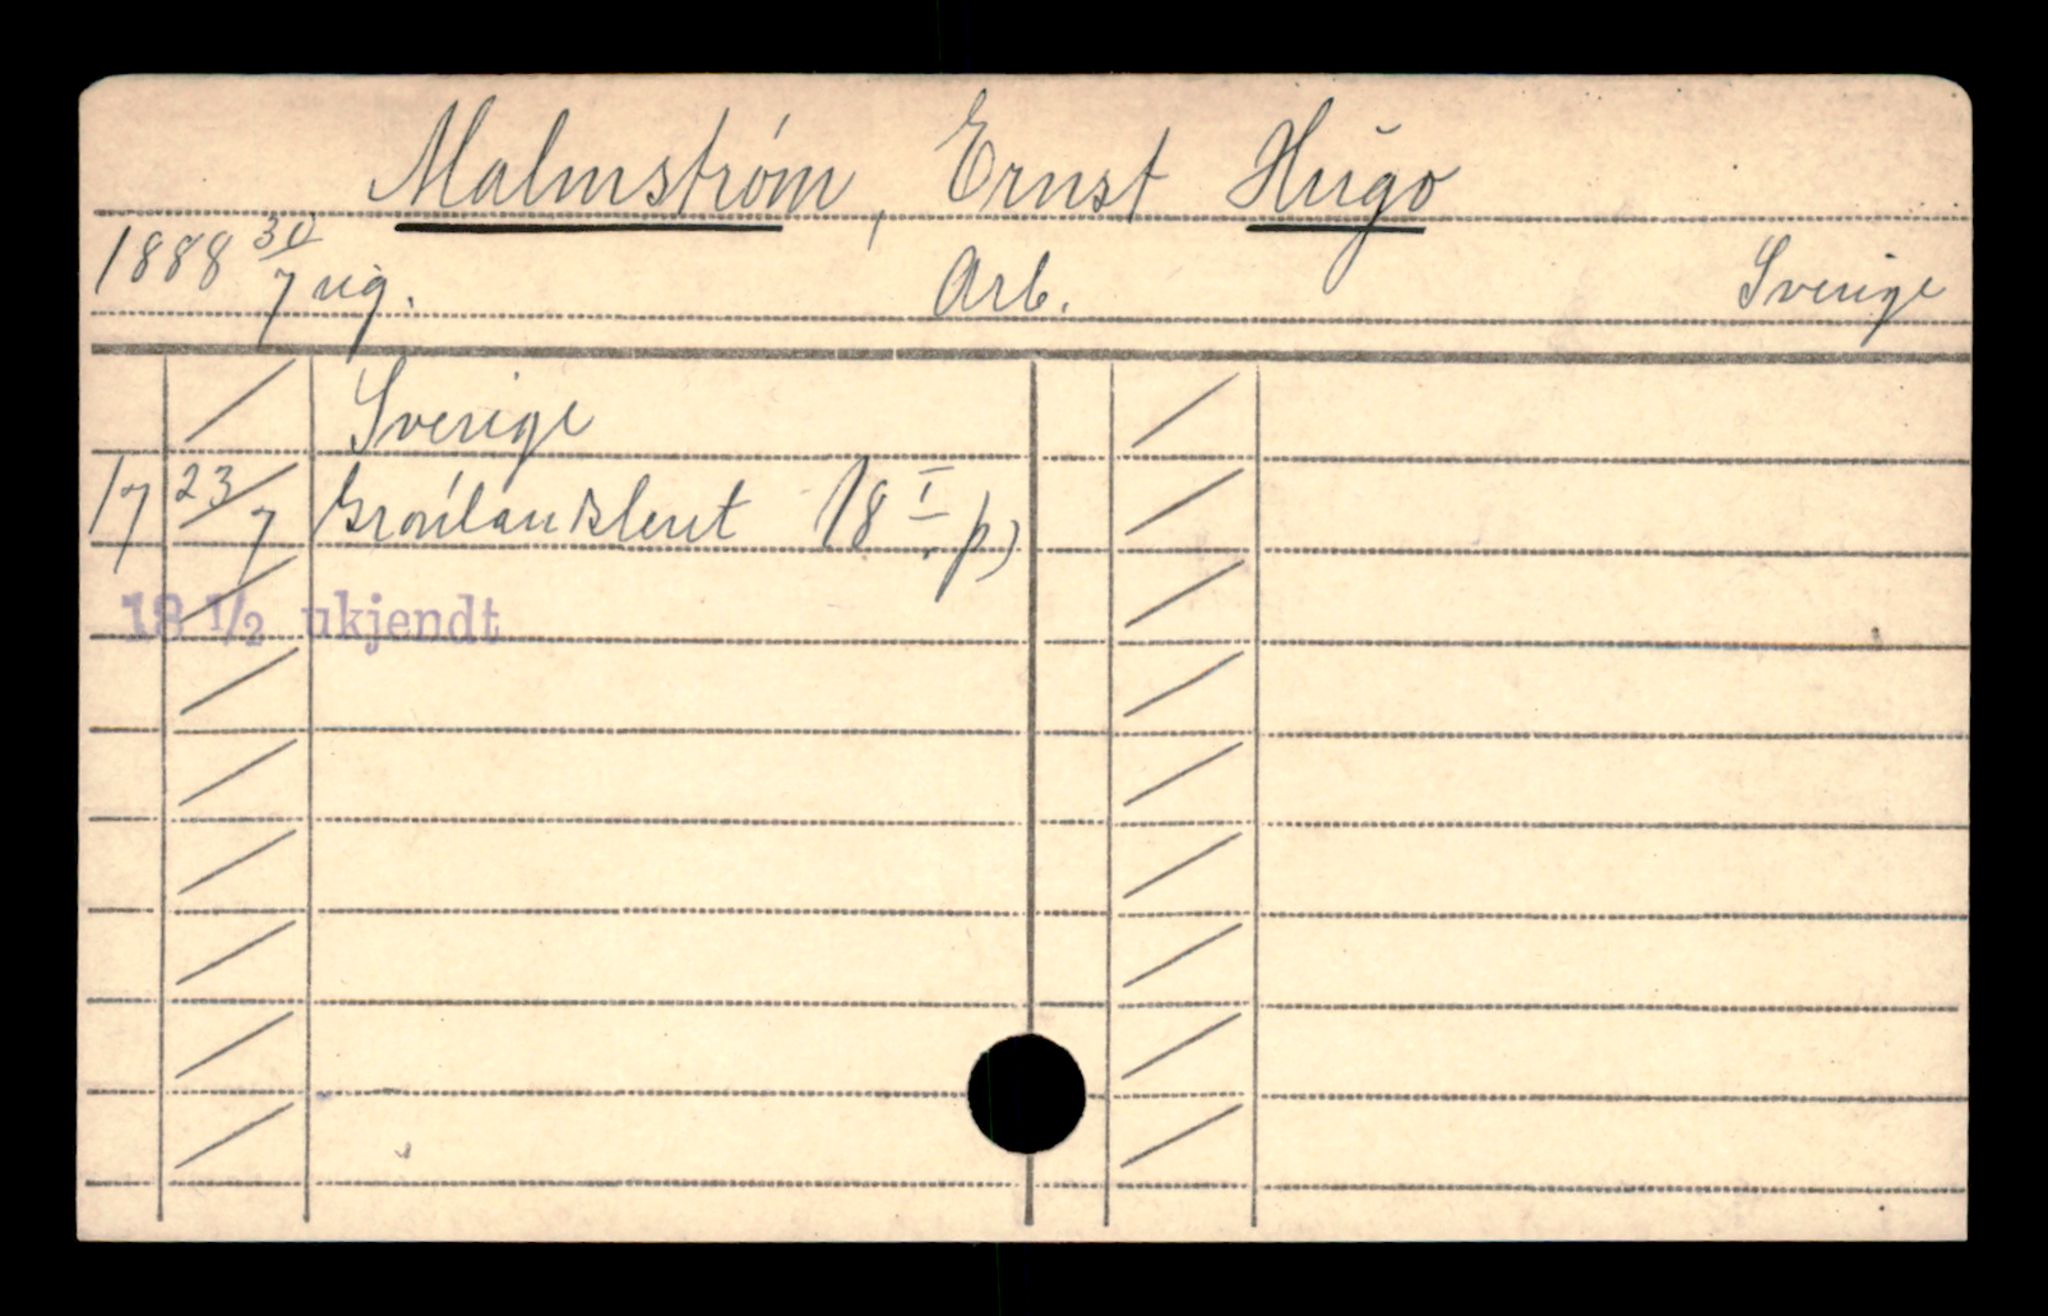 Malmstrøm, Ernst Hugo
1888 30/7 ug. Arb. Sverige
Sverige
17 23/7 18 I p)
18 1/2 ukjendt